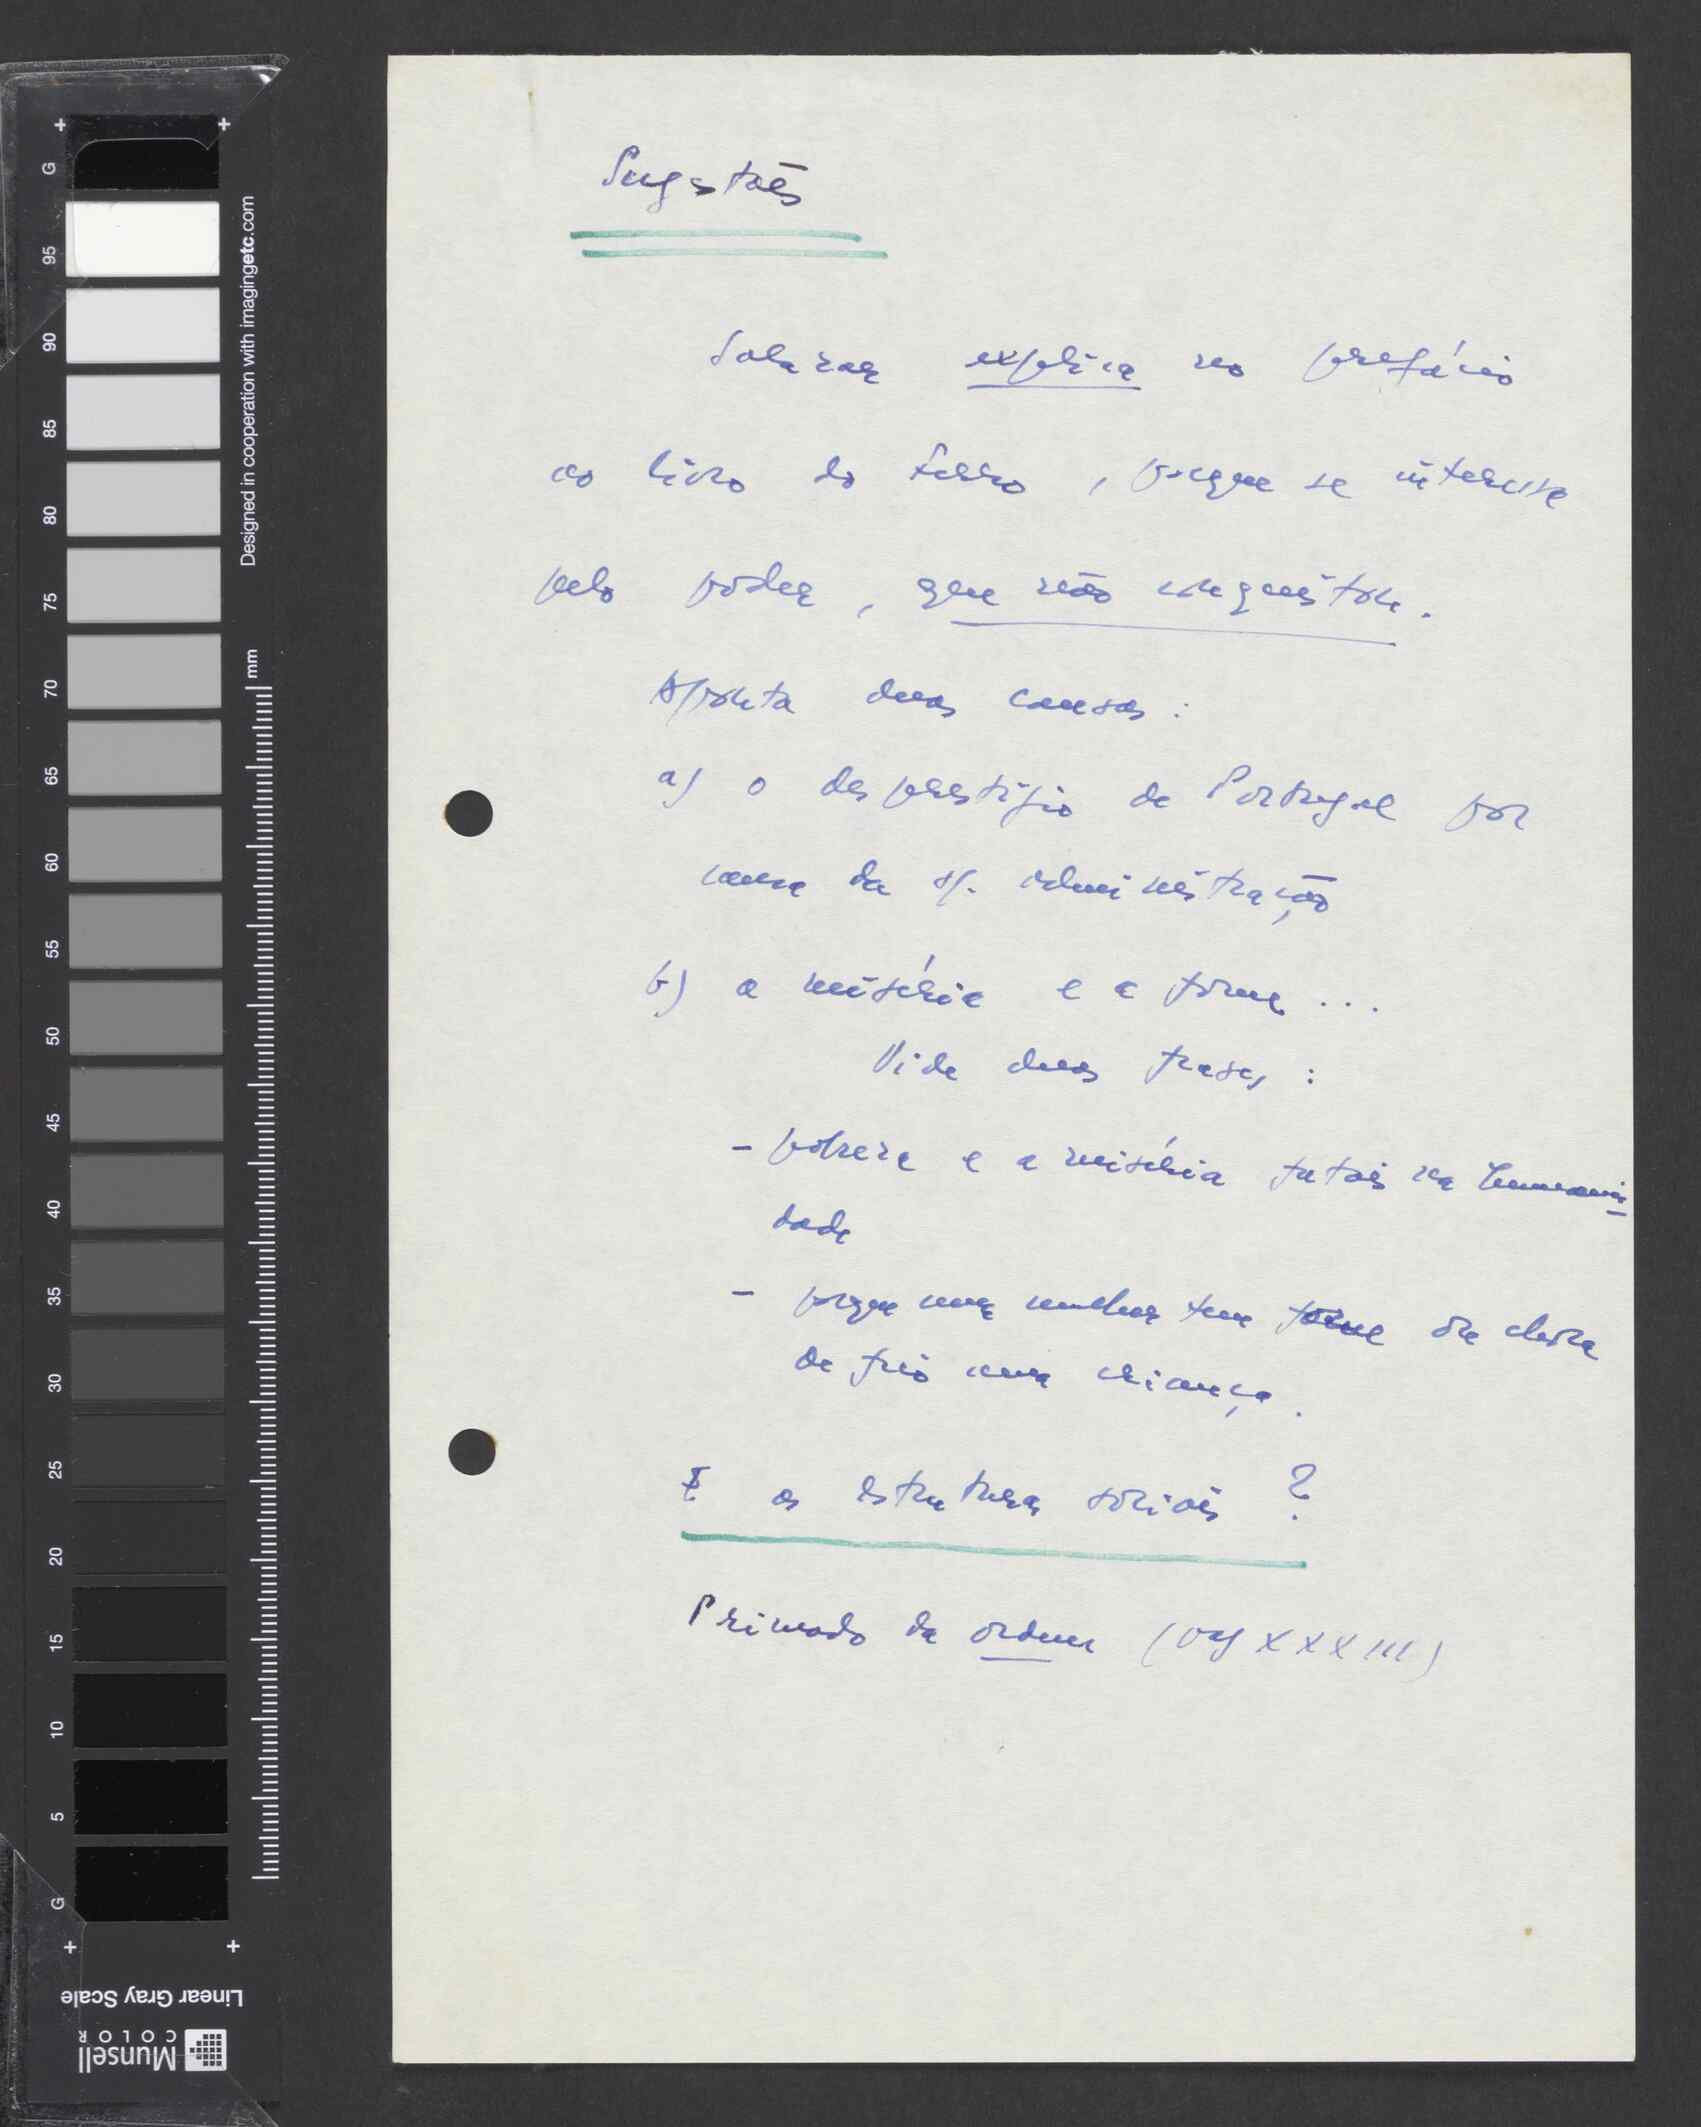 Sugestões
Salazar explica no prefácio
ao livro do Ferro, porque se interessa
pelo poder, que não conquistou.
Aponta duas causas:
a) o desprestígio de Portugal por
causa da s/. administração
b) a miséria e a fome...
Vide duas frases:
- pobreza e a miséria fatais na humani-
dade
- porque uma mulher tem fome ou chora
de frio uma criança.
E as estruturas sociais?
Primado da ordem (pag XXXIII)
G
95
90
85
80
75
70
65
60
55
50
45
40
35
30
25
20
15
10
5
G
Designed in cooperation with imagingetc.com
mm
Linear Gray Scale
Munsell
COLOR